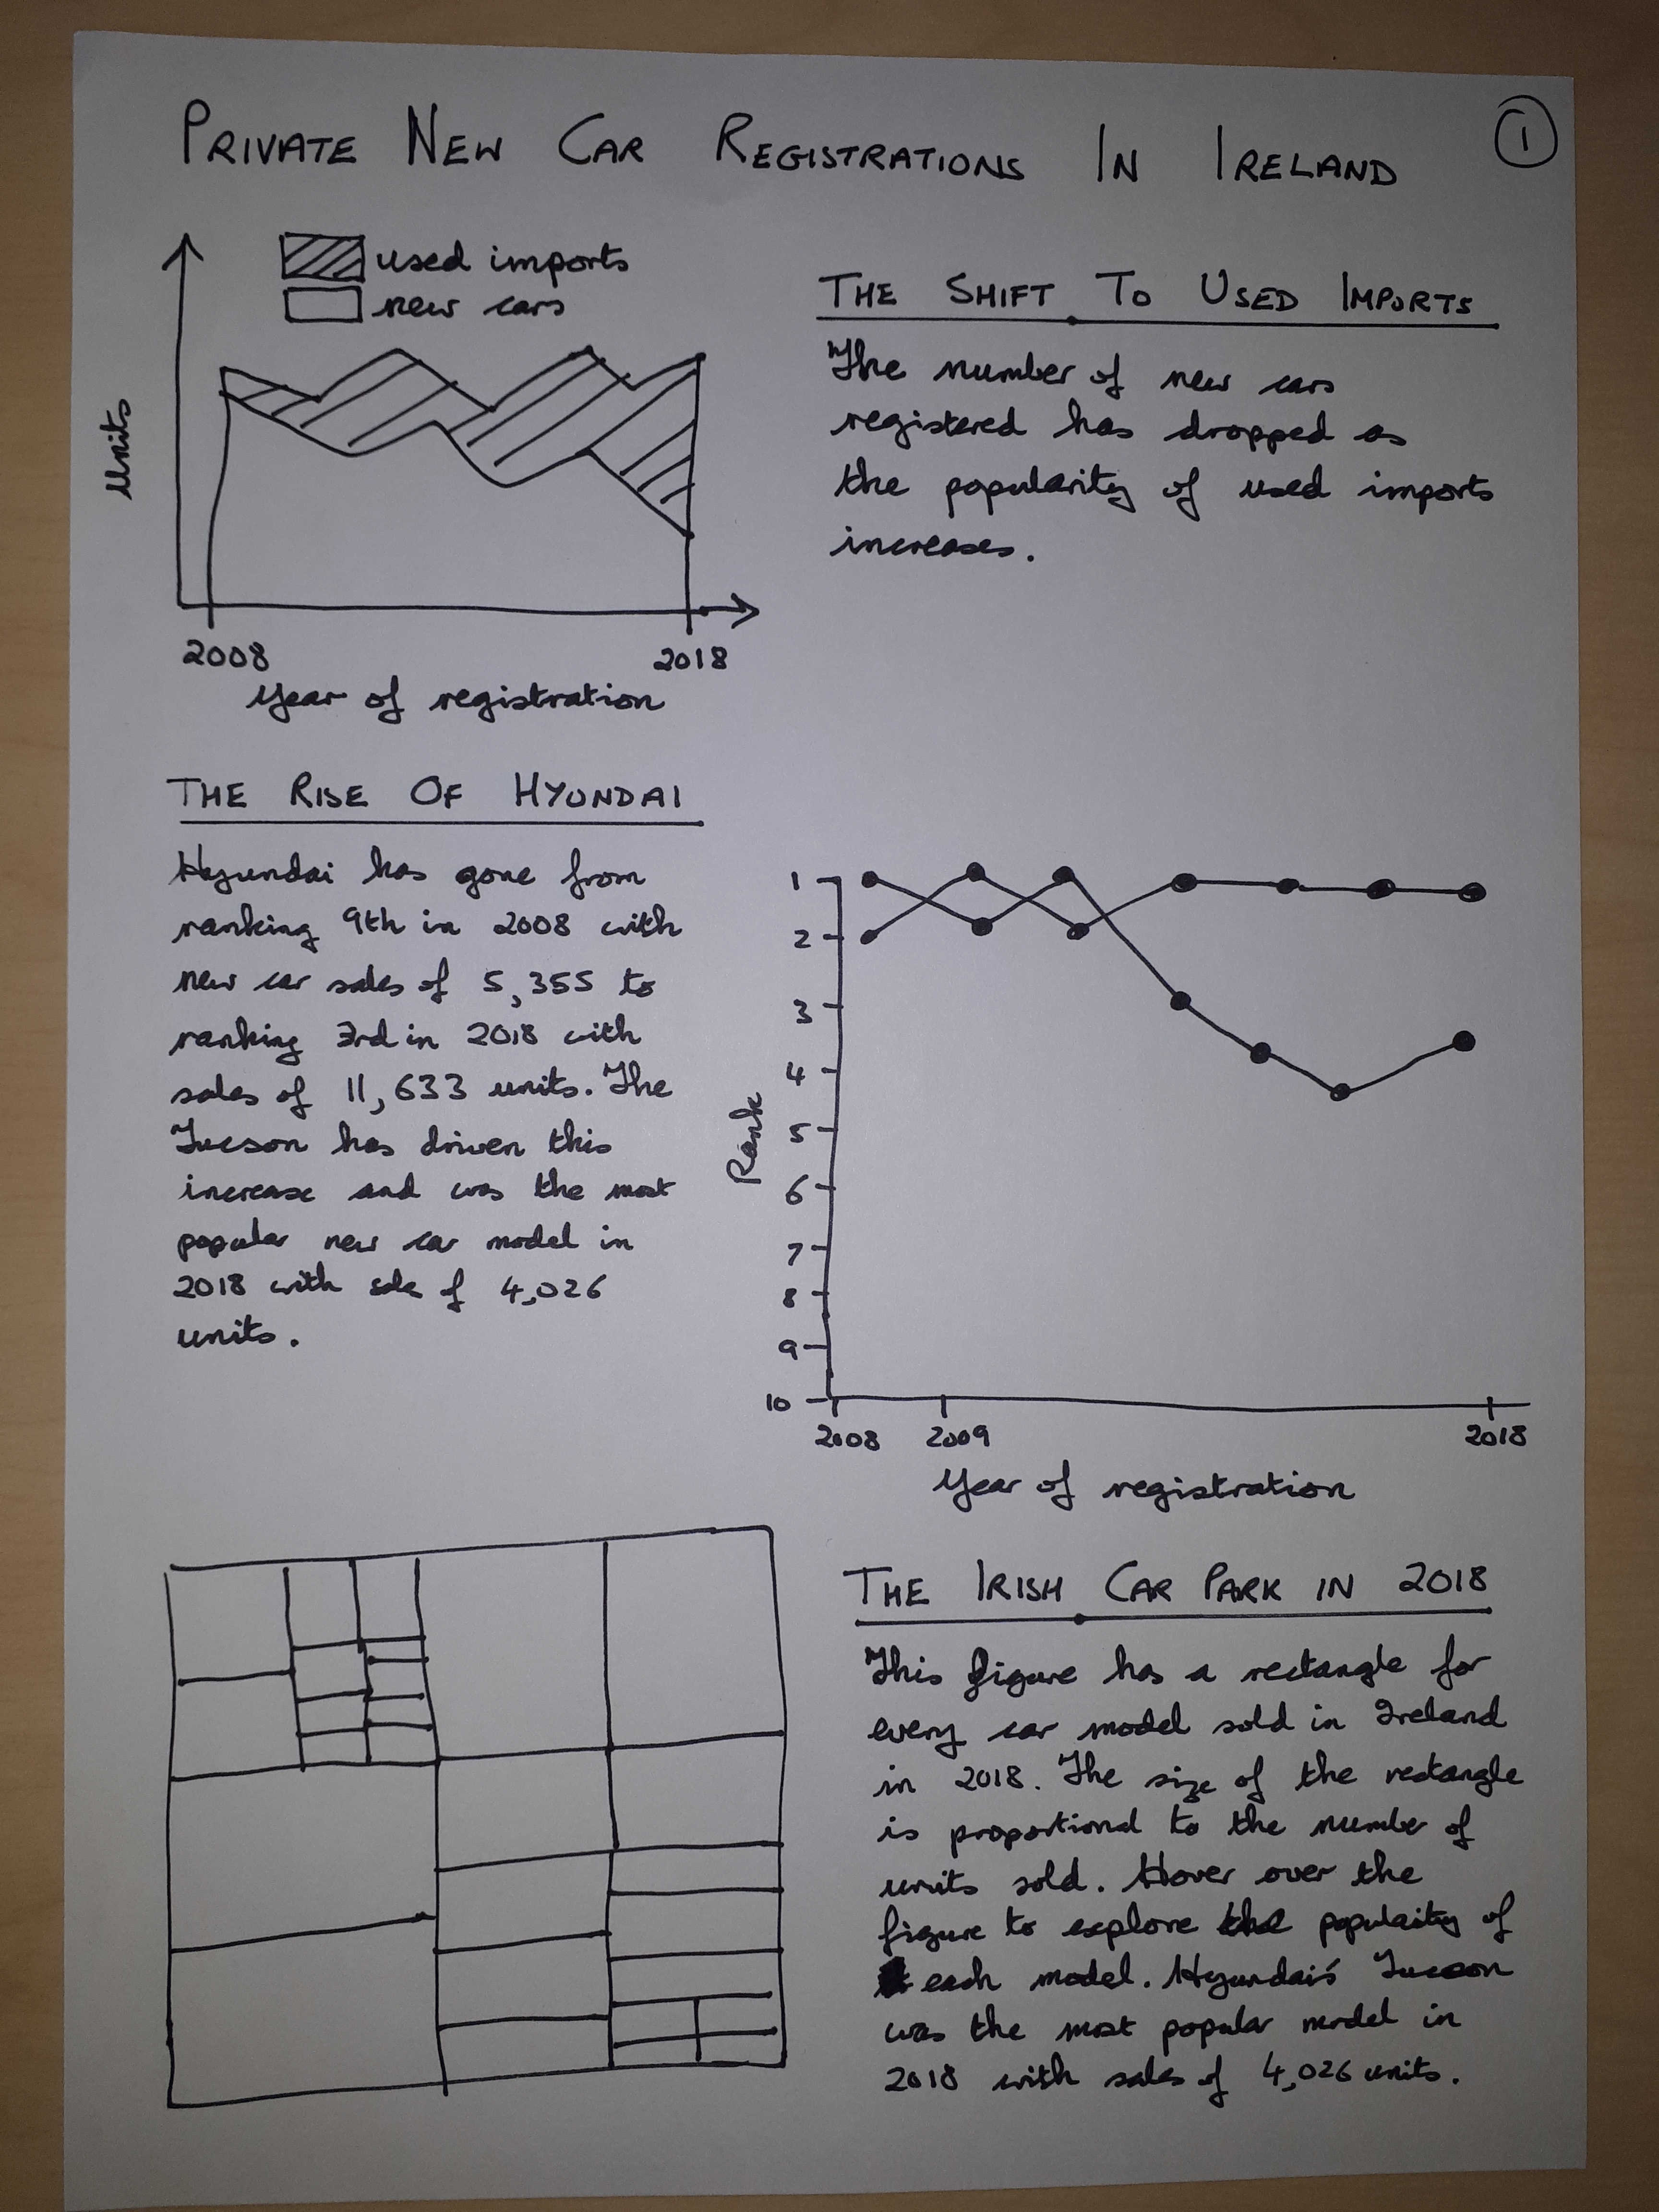 PRIVATE NEW CAR REGISTRATIONS IN IRELAND
1
used imports
new cars
Units
2008 2018
Year of registration
THE SHIFT TO USED IMPORTS
The number of new cars
registered has dropped as
the popularity of used imports
increases.
THE RISE OF HYUNDAI
Hyundai has gone from
ranking 9th in 2008 with
new car sales of 5,355 to
ranking 3rd in 2018 with
sales of 11,633 units. The
Tucson has driven this
increase and was the most
popular new car model in
2018 with sale of 4,026
units.
Rank
1
2
3
4
5
6
7
8
9
10
2008 2009 2018
Year of registration
THE IRISH CAR PARK IN 2018
This figure has a rectangle for
every car model sold in Ireland
in 2018. The size of the rectangle
is proportional to the number of
units sold. Hover over the
figure to explore the populaity of
each model. Hyundai's Tucson
was the most popular model in
2018 with sales of 4,026 units.